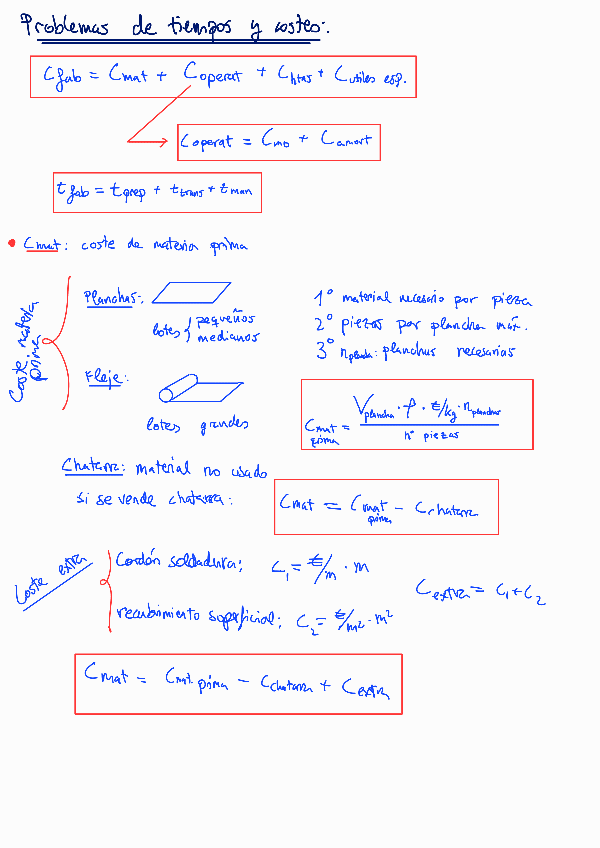 Problemas de tiempos y costeo:.
C fab = C mat + C operat + C htas + C utiles esp.
C operat = C mo + C amort
t fab = t prep + t trans + t man
• C mat: coste de materia prima
Coste materia prima
Planchas:
lotes { pequeños
medianos
Fleje:
lotes grandes
1º material necesario por pieza
2º piezas por plancha máx.
3º n plancha: planchas necesarias
C mat prima = V plancha · ρ · €/kg · n planchas / nº piezas
Chatarra: material no usado
si se vende chatarra:
C mat = C mat prima - C chatarra
Coste extra
Cordón soldadura: C1 = €/m · m
recubrimiento superficial: C2 = €/m² · m²
C extra = C1 + C2
C mat = C mat. prima - C chatarra + C extra